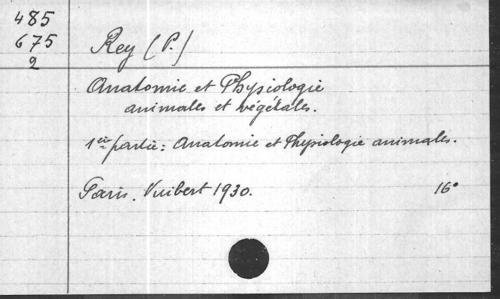 485
675
2
Rey (P.)
Anatomie et Physiologie
animales et végétales.
1ère partie: Anatomie et Physiologie animales.
Paris. Vuibert 1930. 16°